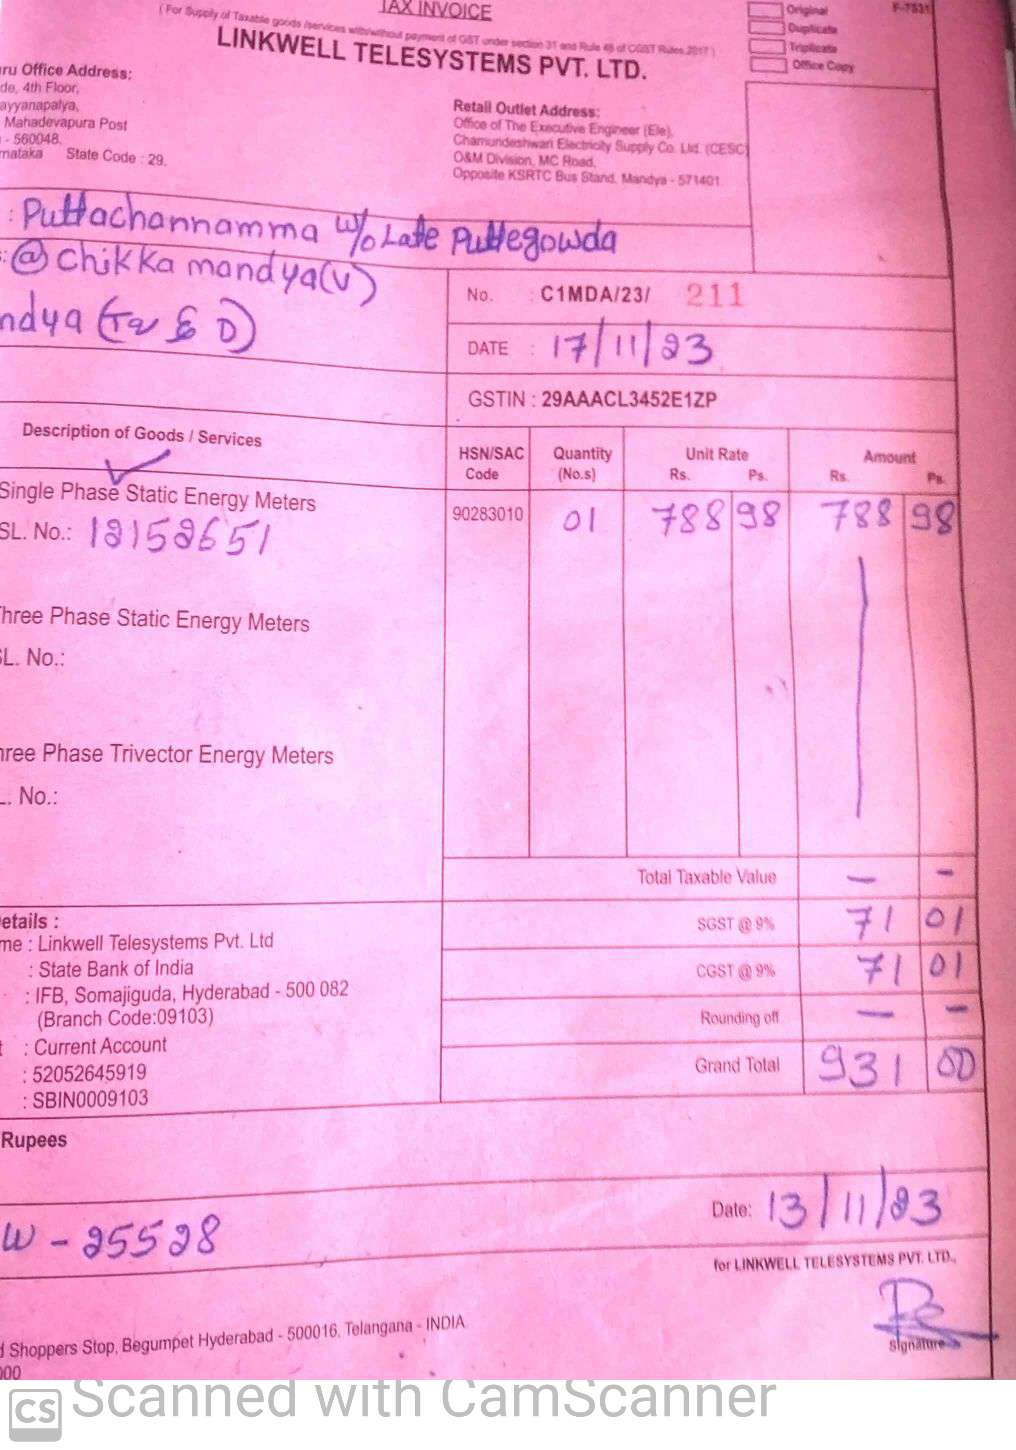 TAX INVOICE
( For Supply of Taxable goods /services with/without payment of GST under section 31 and Rule 46 of CGST Rules 2017 )
Original
F-7531
Duplicate
Triplicate
Office Copy
LINKWELL TELESYSTEMS PVT. LTD.
ru Office Address:
de, 4th Floor,
ayyanapalya,
Mahadevapura Post
- 560048.
nataka State Code : 29.
Retail Outlet Address:
Office of The Executive Engineer (Ele),
Chamundeshwari Electricity Supply Co. Ltd. (CESC)
O&M Division, MC Road,
Opposite KSRTC Bus Stand, Mandya - 571401.
: Puttachannamma w/o Late Puttegowda
: @ Chikka mandya(v)
ndya (Tq & D)
No. : C1MDA/23/ 211
DATE : 17/11/23
GSTIN : 29AAACL3452E1ZP
Description of Goods / Services
HSN/SAC Code
Quantity (No.s)
Unit Rate
Rs. Ps.
Amount
Rs. Ps.
Single Phase Static Energy Meters
90283010 01 788 98 788 98
SL. No.: 12152651
hree Phase Static Energy Meters
SL. No.:
hree Phase Trivector Energy Meters
L. No.:
Total Taxable Value — -
SGST @ 9% 71 01
CGST @ 9% 71 01
Rounding off — -
Grand Total 931 00
etails :
me : Linkwell Telesystems Pvt. Ltd
: State Bank of India
: IFB, Somajiguda, Hyderabad - 500 082
(Branch Code:09103)
t : Current Account
: 52052645919
: SBIN0009103
Rupees
W - 25528
Date: 13/11/23
for LINKWELL TELESYSTEMS PVT. LTD.,
Signature
d Shoppers Stop, Begumpet Hyderabad - 500016, Telangana - INDIA
000
CS Scanned with CamScanner